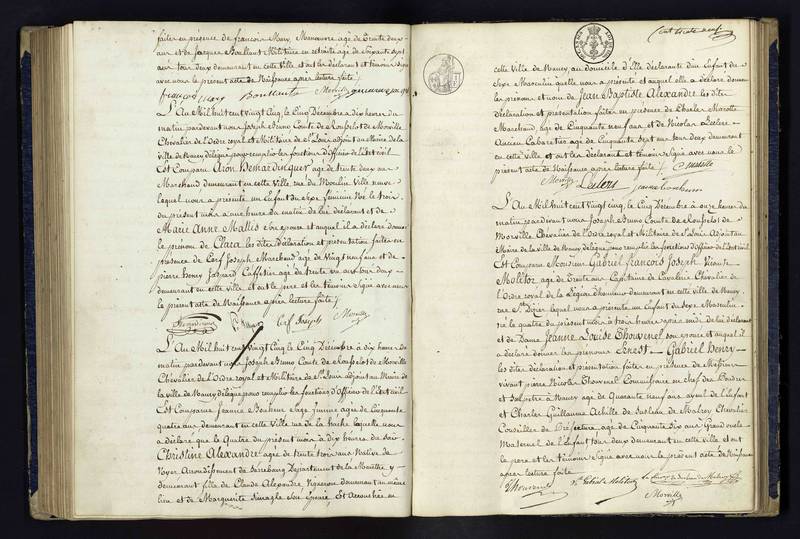 faites en présence de françois Mary, Manœuvre agé de trente deux
ans et de Jacques Militaire en retraite agé de soixante sept
ans tous deux demeurant en cette Ville et ont les déclarant et témoins signé
avec nous le présent acte de Naissance après lecture faite
françois Mary Morville
L'An Mil huit cent vingt Cinq le Cinq Décembre à dix heures du
matin pardevant nous Joseph Bruno Comte de Rousselot de Morville
Chevalier de l'Ordre royal et Militaire de St Louis adjoint au Maire de la
Ville de Nancy délégué pour remplir les fonctions d'Officier de l'état civil
Est Comparu Aron Hemardinquer agé de trente deux ans
Marchand demeurant en cette Ville rue du Moulin Ville neuve
lequel nous a présenté un Enfant du sexe féminin Né le trois
du présent mois à une heure du matin de lui déclarant et de
Marie Anne Mallis son épouse et auquel il a déclaré donner
le prénom de Clara les dites déclaration et présentation faites en
présence de Cerf Joseph Marchand agé de vingt neuf ans et de
pierre henry Caffetier agé de trente ans tous deux
demeurant en cette Ville et ont le pere et les témoins signé avec nous
le présent acte de Naissance après lecture faite
Cerf Joseph Morville
L'An Mil huit cent Vingt Cinq le Cinq Décembre à dix heures du
matin pardevant nous Joseph Bruno Comte de Rousselot de Morville
Chevalier de l'Ordre royal et Militaire de St Louis adjoint au Maire de
la Ville de Nancy délégué pour remplir les fonctions d'Officier de l'état civil
Est Comparue Jeanne Sage femme agée de Cinquante
quatre ans demeurant en cette Ville rue de la hache laquelle nous
a déclaré que le Quatre du présent mois à dix heures du soir
Christine Alexandre agée de trente trois ans Native de
Voyer Arrondissement de Sarrebourg Département de la Meurthe y
demeurant fille de Claude Alexandre, Vigneron demeurant au même
lieu et de Marguerite son épouse, Est accouchée en
Cent trente neuf
cette Ville de Nancy au domicile d'Elle déclarante d'un Enfant du
Sexe Masculin quelle nous a présenté et auquel elle a déclaré donner
les prénoms et nom de Jean Baptiste Alexandre les dites
déclaration et présentation faites en présence de Charles
Marchand agé de Cinquante neuf ans et de Nicolas Leclerc
Ancien Cabaretier agé de Cinquante sept ans tous deux demeurant
en cette Ville et ont les déclarant et témoins signé avec nous le
présent acte de Naissance après lecture faite
Morville Leclerc
L'An Mil huit cent vingt cinq, le Cinq Décembre à onze heures du
matin pardevant nous Joseph Bruno Comte de Rousselot de
Morville Chevalier de l'Ordre royal et Militaire de St Louis Adjoint au
Maire de la Ville de Nancy délégué pour remplir les fonctions d'Officier de l'état civil
Est Comparu Monsieur Gabriel françois Joseph Vicomte
Molitor agé de trente ans Capitaine de Cavalerie Chevalier de
l'Ordre royal de la Légion d'honneur demeurant en cette Ville de Nancy
rue St Dizier lequel nous a présenté un Enfant du Sexe Masculin
né le quatre du présent mois à trois heures après midi de lui déclarant
et de Dame Jeanne Louise Thouvenel son épouse et auquel il
a déclaré donner les prénoms Ernest Gabriel Henry
les dites déclaration et présentation faites en présence de Messieurs
pierre Nicolas Thouvenel Commissaire en chef des Poudres
et Salpêtres à Nancy agé de Quarante neuf ans ayeul de l'Enfant
et Charles Guillaume Achille de Malroy Chevalier
Conseiller de Préfecture agé de Cinquante six ans Grand oncle
Maternel de l'Enfant tous deux demeurant en cette Ville et ont
le pere et les témoins signé avec nous le présent acte de Naissance
après lecture faite
Thouvenel Vte Gabriel Molitor
Morville